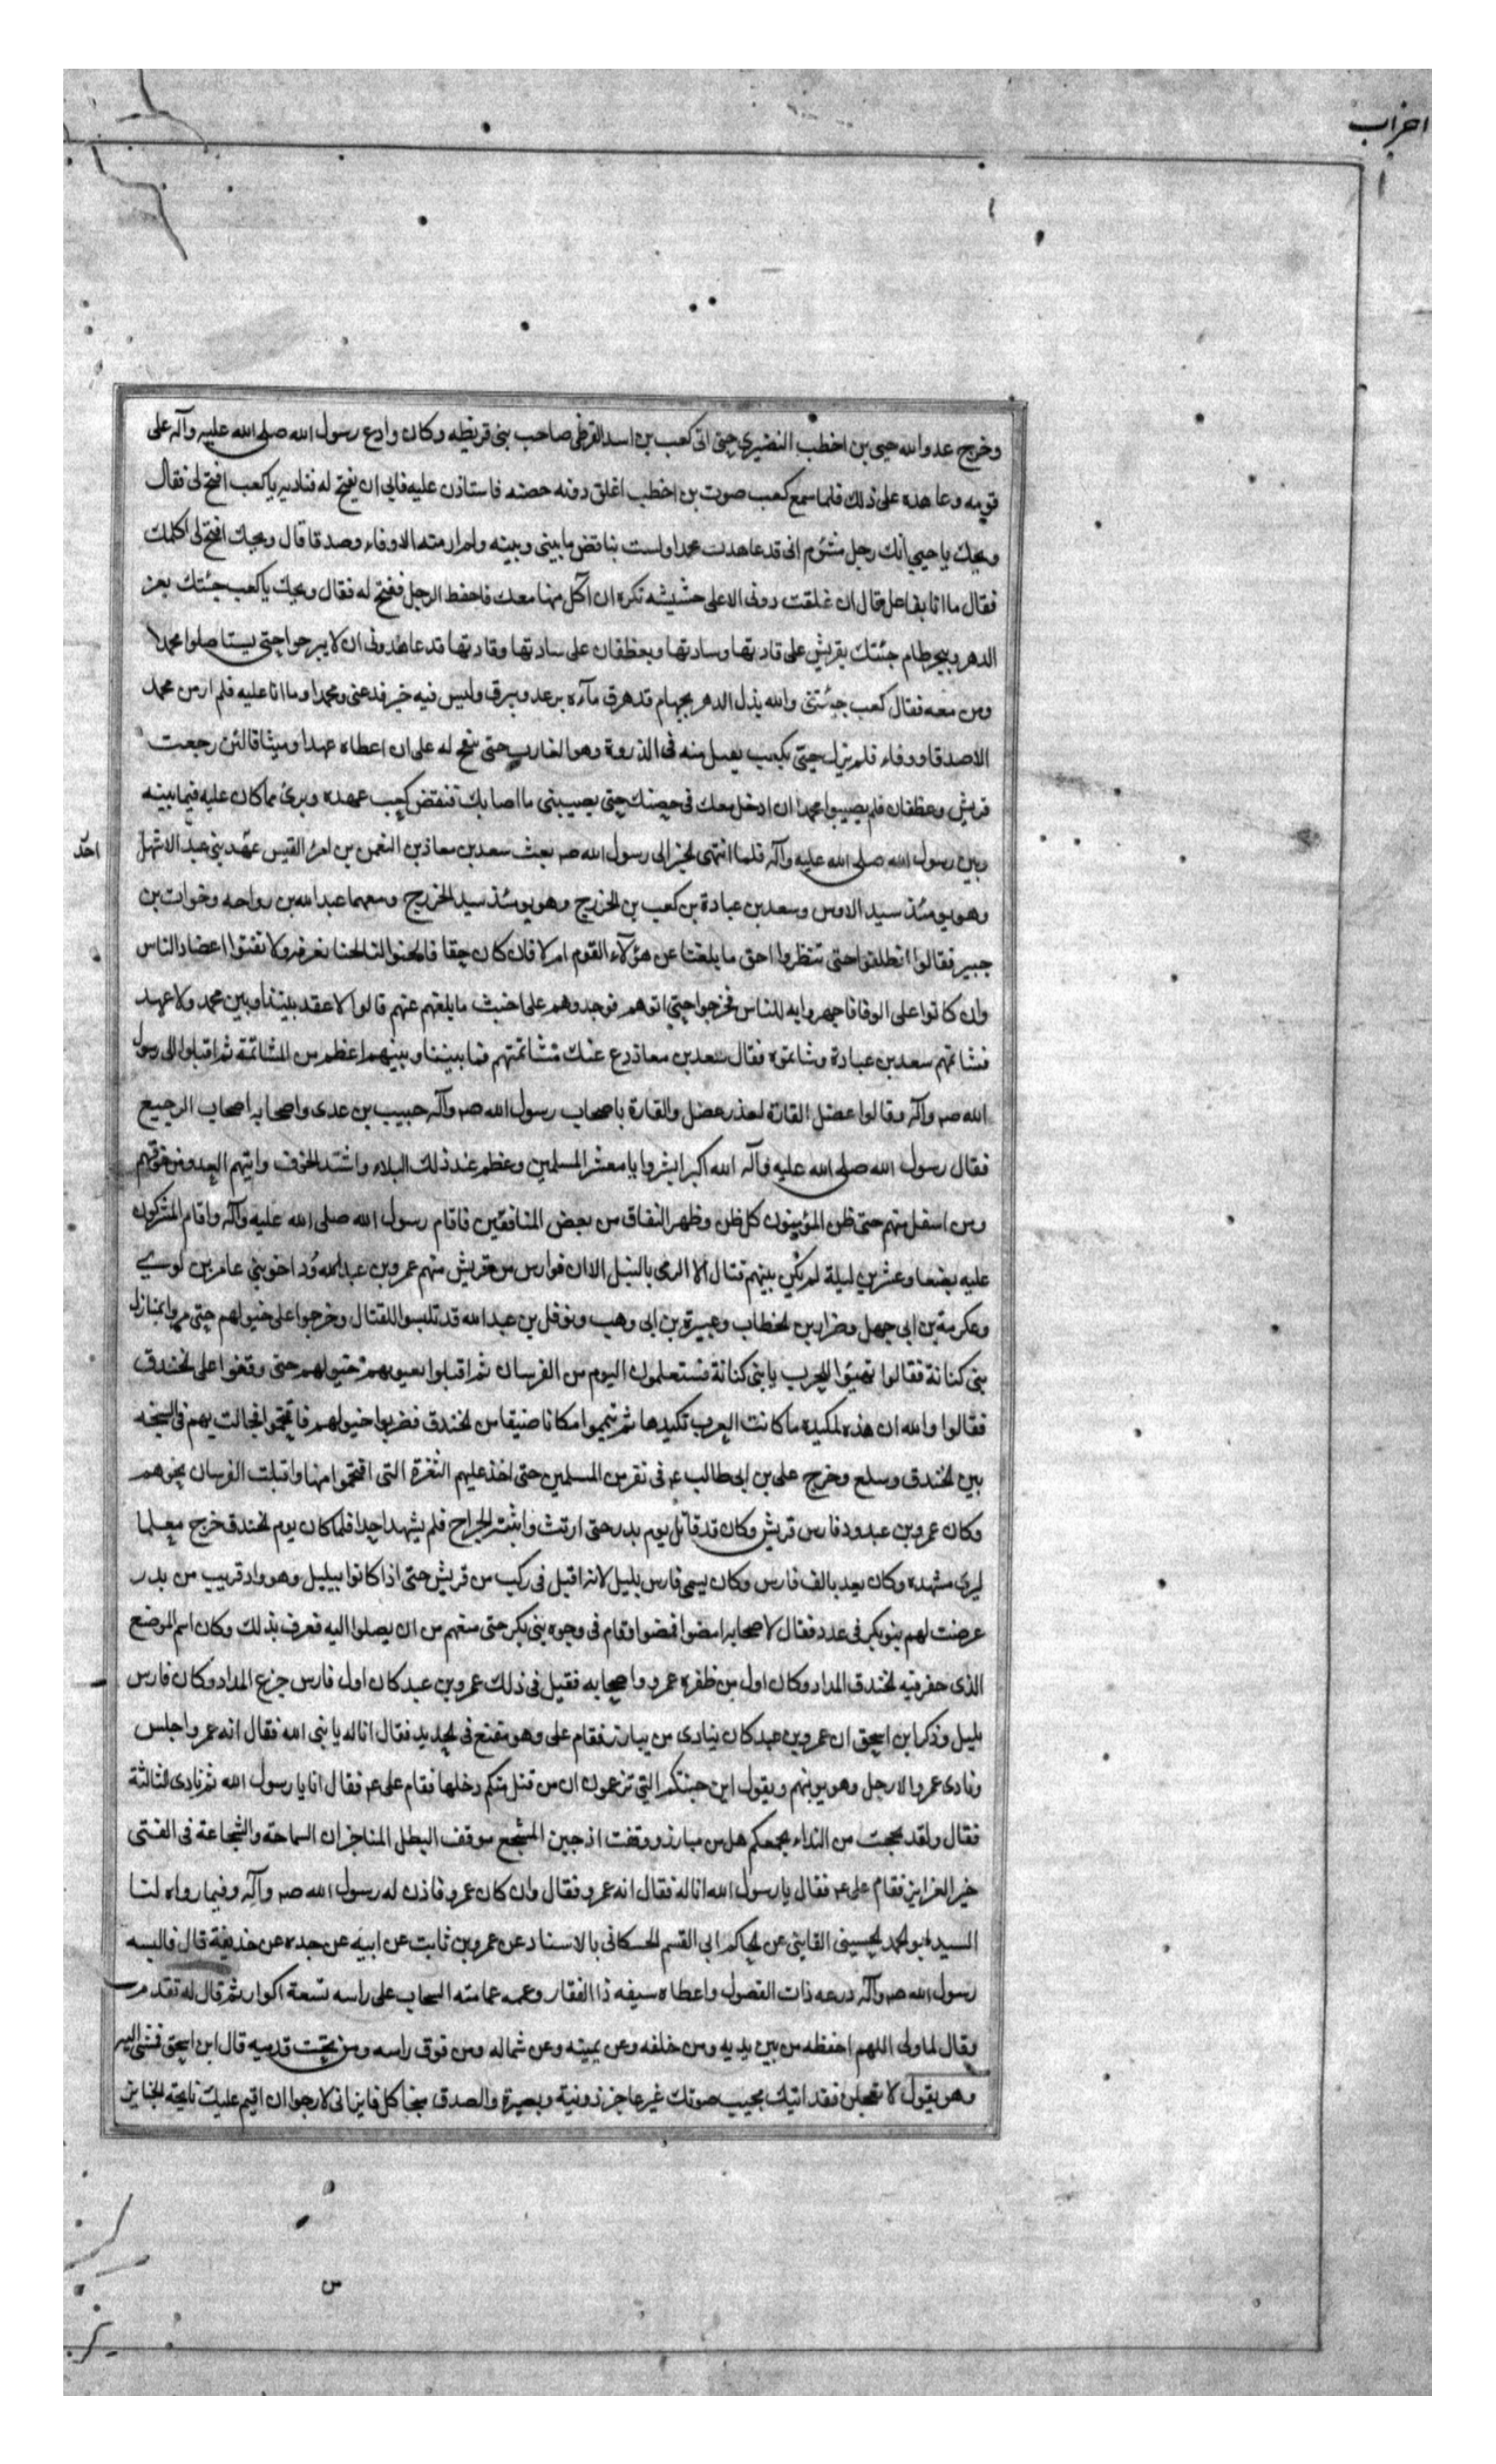 احزاب
وخرج عدو الله حيى بن اخطب النضيرى حتى اتى كعب بن اسد القرظى صاحب بنى قريظه وكان وادع رسول الله صلى الله عليه وآله على
قومه وعاهده على ذلك فلما سمع كعب صوت بن اخطب اغلق دونه حصنه فاستاذن عليه فابى ان يفتح له فناديه ياكعب افتح لى فقال
ويحك ياحيى انك رجل مشئوم انى قد عاهدت محمدا ولست بناقض ما بينى وبينه ولم ار منه الا وفاء وصدقا قال ويحك افتح لى اكلمك
فقال ما انا بفاعل قال ان غلقت دونى الا على حشيشه تكره ان آكل منها معك فاحفظ الرجل ففتح له فقال ويحك ياكعب جئتك بعز
الدهر وببحر طام جئتك بقريش على قادتها وسادتها وبغطفان على سادتها وقادتها قد عاهدونى ان لا يبرحوا حتى يستاصلوا محمدا
ومن معه فقال كعب جئتنى والله بذل الدهر بجهام قد هرق مآءه يرعد ويبرق وليس فيه خير فدعنى ومحمدا وما انا عليه فلم ار من محمد
الا صدقا ووفاء فلم يزل حيى بكعب يفتل منه فى الذروة وهو الغارب حتى سمح له على ان اعطاه عهدا وميثاقا لئن رجعت
قريش وغطفان فلم يصيبوا محمدا ان ادخل معك فى حصنك حتى يصيبنى ما اصابك فنقض كعب عهده وبرئ مما كان عليه فيما بينه
وبين رسول الله صلى الله عليه وآله فلما انتهى الخبر الى رسول الله صه بعث سعد بن معاذ بن النعمن بن امرء القيس احد بنى عبد الاشهل
وهو يومئذ سيد الاوس وسعد بن عبادة بن كعب بن الخزرج وهو يومئذ سيد الخزرج ومعهما عبد الله بن رواحه وخوات بن
جبير فقالوا انطلقوا حتى تنظروا احق ما بلغنا عن هؤلآء القوم ام لا فان كان حقا فالحنوا لنا لحنا نعرفه ولا تفتوا اعضاد الناس
وان كانوا على الوفا فاجهروا به للناس فخرجوا حتى اتوهم فوجدوهم على اخبث ما بلغهم عنهم قالوا لا عقد بيننا وبين محمد ولا عهد
فشاتمهم سعد بن عبادة وشاتموه فقال سعد بن معاذ دع عنك مشاتمتهم فما بيننا وبينهم اعظم من المشاتمة ثم اقبلوا الى رسول
الله صه وآله وقالوا عضل القارة لعذر عضل والقارة باصحاب رسول الله صه وآله حبيب بن عدى واصحابه اصحاب الرجيع
فقال رسول الله صلى الله عليه وآله الله اكبر ابشروا يا معشر المسلمين وعظم عند ذلك البلاء واشتد الخوف واتيهم العدو من فوقهم
ومن اسفل منهم حتى ظن المؤمنون كل ظن وظهر النفاق من بعض المنافقين فاقام رسول الله صلى الله عليه وآله واقام المشركون
عليه بضعا وعشرين ليلة لم يكن بينهم قتال الا الرمى بالنبل الا ان فوارس من قريش منهم عمرو بن عبد ود اخو بنى عامر بن لوى
وعكرمة بن ابى جهل وضرار بن الخطاب وهبيرة بن ابى وهب ونوفل بن عبد الله قد تلبسوا للقتال وخرجوا على خيولهم حتى مروا بمنازل
بنى كنانة فقالوا تهيئوا للحرب يابنى كنانة فستعلمون اليوم من الفرسان ثم اقبلوا خيولهم حتى وقفوا على الخندق
فقالوا والله ان هذه لمكيده ما كانت العرب تكيدها ثم تيمموا مكانا ضيقا من الخندق فضربوا خيولهم فاقتحموا فجالت بهم فى السبخه
بين الخندق وسلع وخرج على بن ابى طالب ع فى نفر من المسلمين حتى اخذ عليهم الثغرة التى اقتحموا منها واقبلت الفرسان نحوهم
وكان عمرو بن عبدود فارس قريش وكان قد قاتل يوم بدر حتى ارتث واثبته الجراح فلم يشهد احدا فلما كان يوم الخندق خرج معلما
ليرى مشهده وكان يعد بالف فارس وكان يسمى فارس يليل لانه اقبل فى ركب من قريش حتى اذا كانوا بيليل وهو واد قريب من بدر
عرضت لهم بنو بكر فى عدد فقال لاصحابه امضوا فمضوا وقام فى وجوه بنى بكر حتى منعهم من ان يصلوا اليه فعرف بذلك وكان اسم الموضع
الذى حفر فيه الخندق المداد وكان اول من ظفره عمرو واصحابه فقيل فى ذلك عمرو بن عبد كان اول فارس جزع المداد وكان فارس
يليل وذكر ابن اسحق ان عمرو بن عبد كان ينادى من يبارز فقام على وهو مقنع فى الحديد فقال انا له يا نبى الله فقال انه عمرو اجلس
ونادى عمرو الا رجل وهو يؤنبهم ويقول اين جنتكم التى تزعمون ان من قتل منكم دخلها فقام على ع فقال انا يا رسول الله ثم نادى الثالثة
فقال ولقد بححت من النداء بجمعكم هل من مبارز ووقفت اذ جبن المشجع موقف البطل المناجز ان السماحة والشجاعة فى الفتى
خير الغرايز فقام على ع فقال يا رسول الله انا له فقال انه عمرو فقال وان كان عمرو فاذن له رسول الله صه وآله وفيما رواه لنا
السيد ابو محمد الحسينى القاينى عن الحاكم ابى القسم الحسكانى بالاسناد عن عمرو بن ثابت عن ابيه عن جده عن حذيفة قال فالبسه
رسول الله صه وآله درعه ذات الفضول واعطاه سيفه ذا الفقار وعممه عمامته السحاب على راسه تسعة اكوار ثم قال له تقدم
وقال لما ولى اللهم احفظه من بين يديه ومن خلفه وعن يمينه وعن شماله ومن فوق راسه ومن تحت قدميه قال ابن اسحق فمشى اليه
وهو يقول لا تعجلن فقد اتيك مجيب صوتك غير عاجز ذونية وبصيرة والصدق منجا كل فايز انى لارجوا ان اقيم عليك نايحة الجنايز